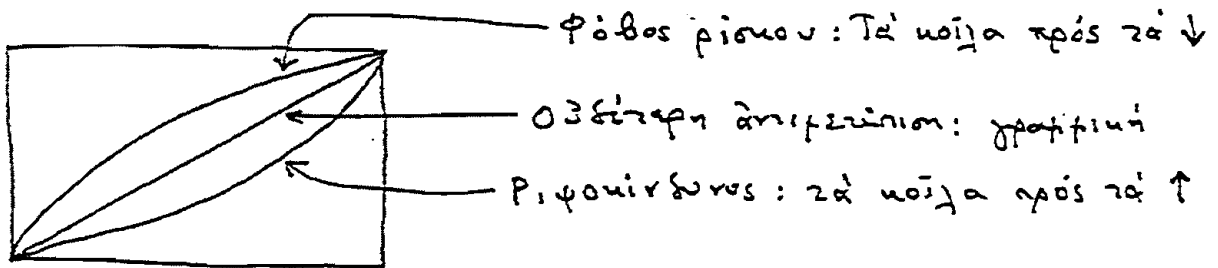 Φόβος ρίσκου: Τά κοῖλα πρός τά ↓
Οὐδέτερη ἀντιμετώπιση: γραμμική
Ριψοκίνδυνος: τά κοῖλα πρός τά ↑